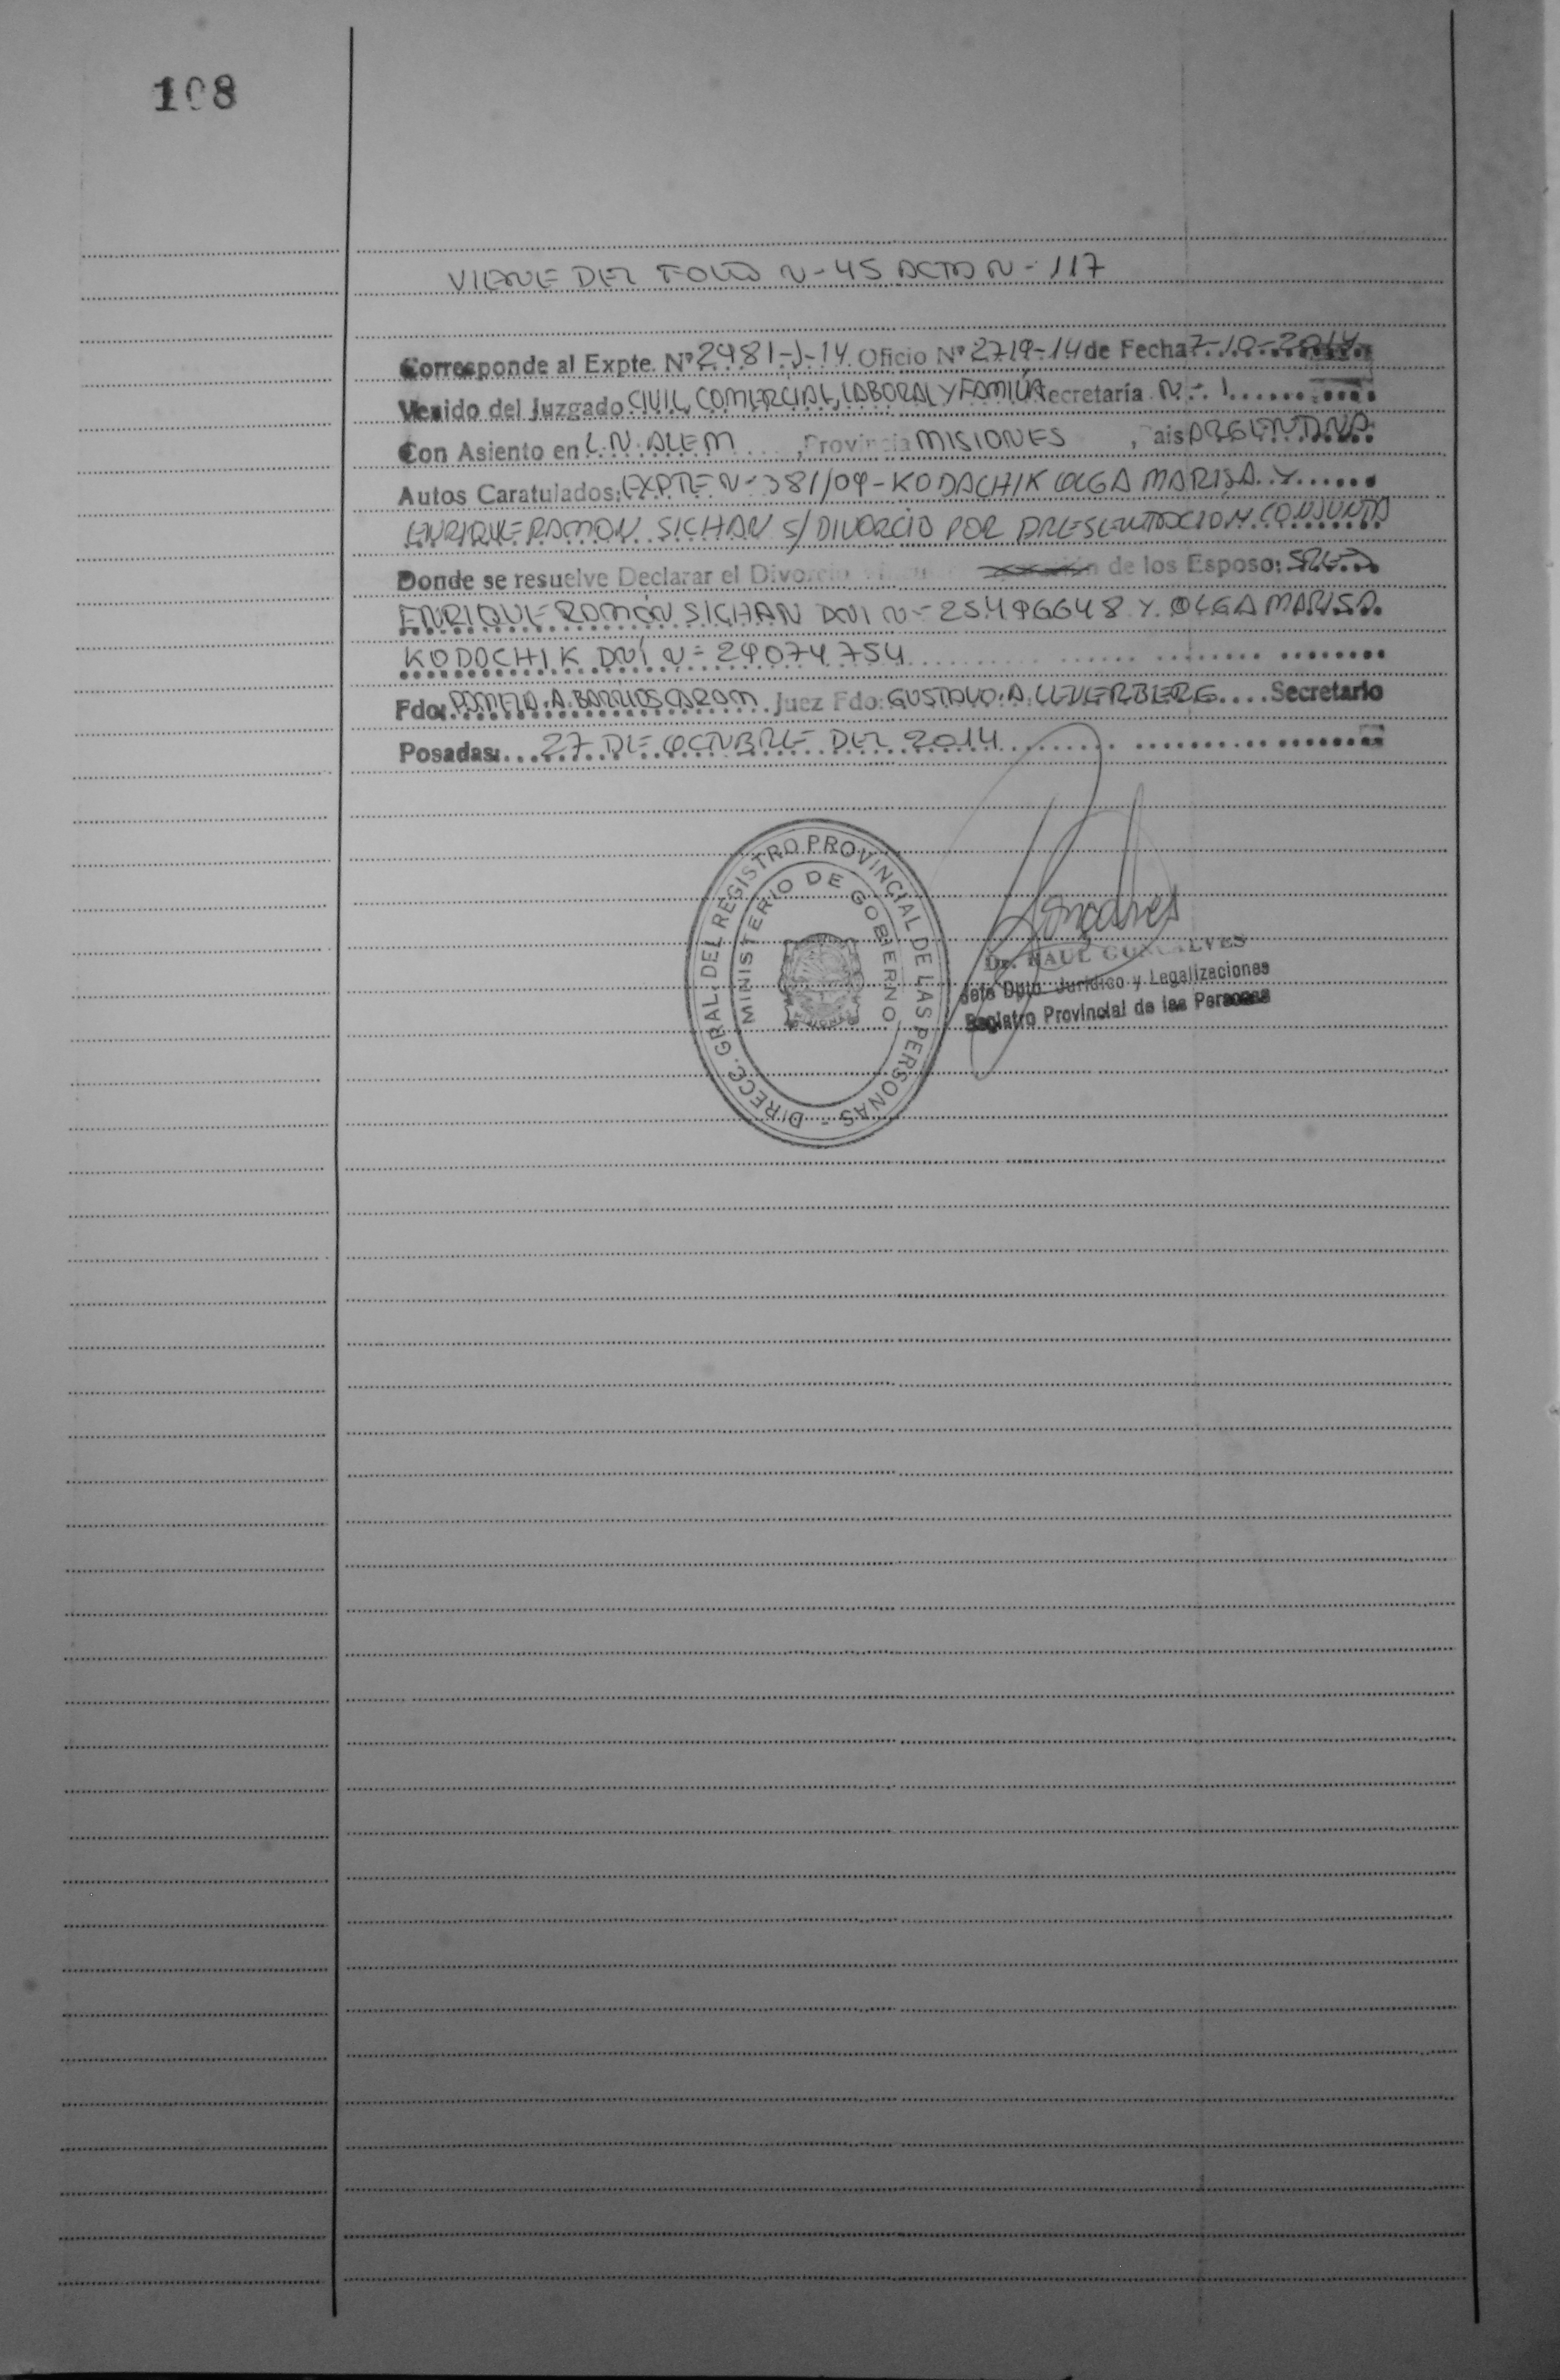 108
VIENE DEL FOLIO N-45 ACTA N-117
Corresponde al Expte. Nº 2481-J-14 Oficio Nº 2719-14 de Fecha 7-10-2014
Venido del Juzgado CIVIL, COMERCIAL, LABORAL Y FAMILIA Secretaría N-1
Con Asiento en L.N. ALEM, Provincia MISIONES, Pais ARGENTINA
Autos Caratulados: EXPTE N-381/09-KODACHIK OLGA MARISA Y
ENRIQUE RAMON SICHAN S/ DIVORCIO POR PRESENTACION CONJUNTA
Donde se resuelve Declarar el Divorcio de los Esposo: SRES
ENRIQUE RAMÓN SICHAN DNI N- 25.496648 Y OLGA MARISA
KODOCHIK DNI N- 24074754
Fdo: PAMELA A. BARRIOS CARAM Juez Fdo: GUSTAVO A. Secretario
Posadas: 27 DE OCTUBRE DEL 2014
DIRECC. GRAL. DEL REGISTRO PROVINCIAL DE LAS PERSONAS -
MINISTERIO DE GOBIERNO
MISIONES
Dr. RAUL GONCALVES
Jefe Dpto. Jurídico y Legalizaciones
Registro Provincial de las Personas